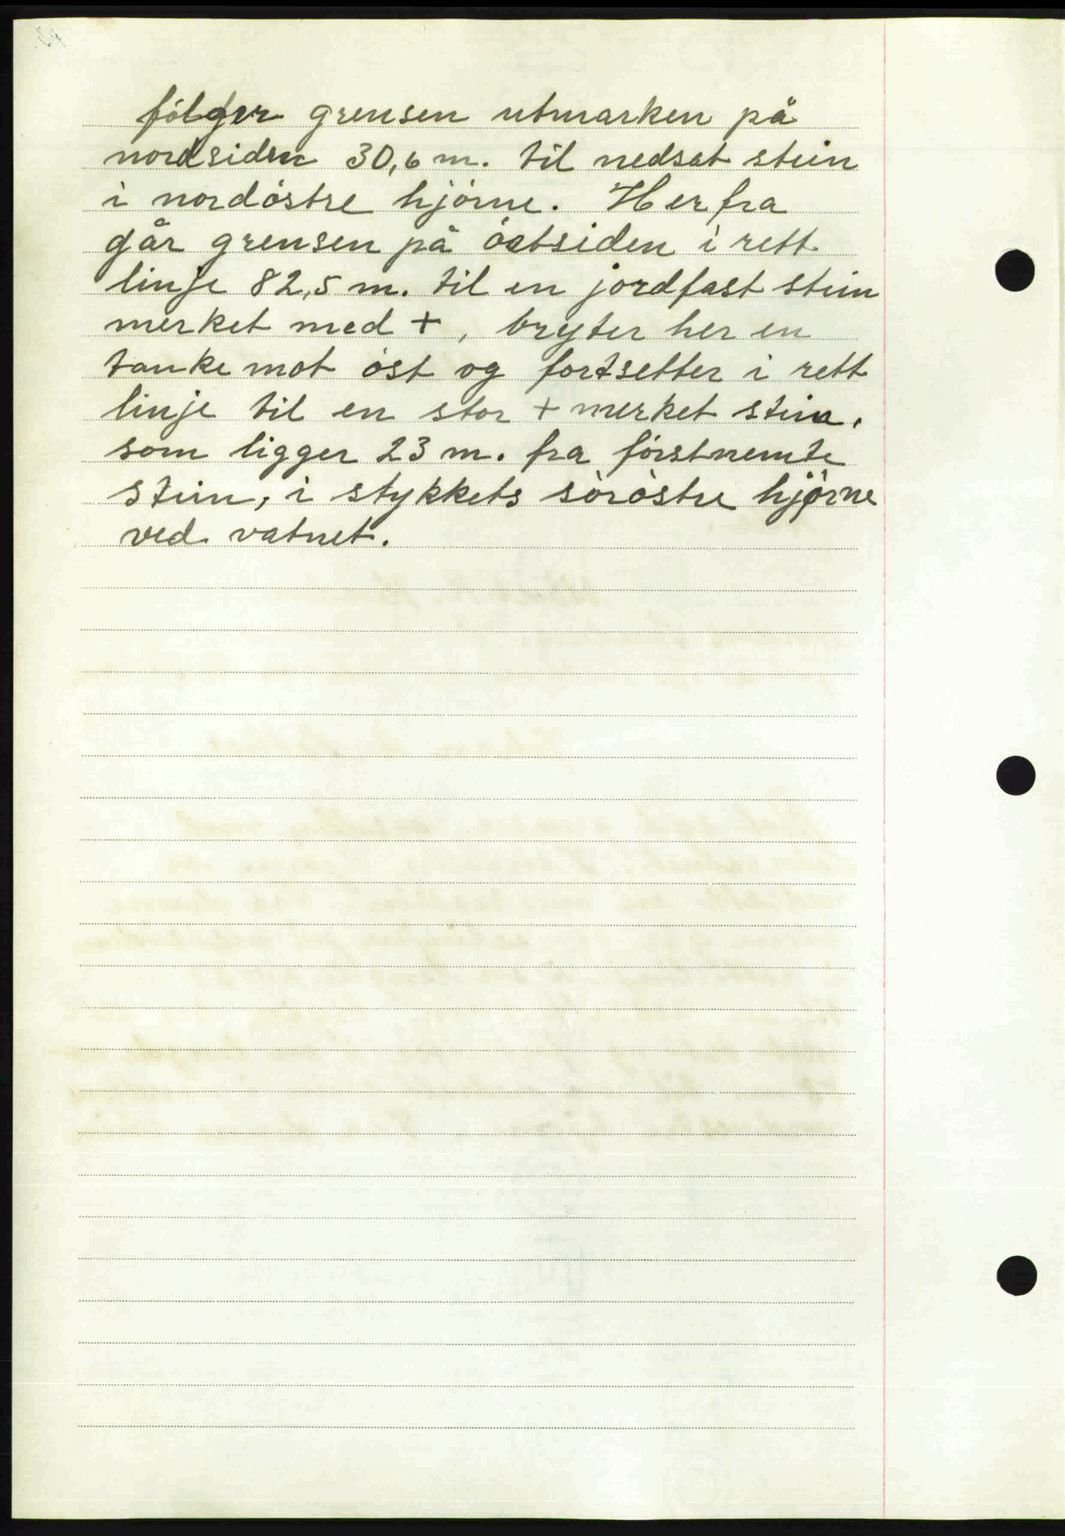 fölger grensen utmarken på
nordsiden 30,6 m. til nedsat stein
i nordöstre hjörne. Herfra
går grensen på östsiden i rett
linje 82,5 m. til en jordfast stein
merket med +, bryter her en
tanke mot öst og fortsetter i rett
linje til en stor + merket stein,
som ligger 23 m. fra förstnemte
stein, i stykkets söröstre hjörne
ved vatnet.